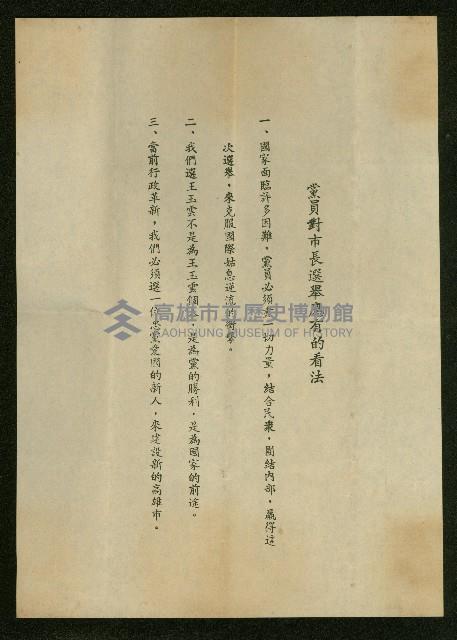 黨員對市長選舉應有的看法
一、國家面臨許多困難，黨員必須盡一切力量，結合民衆，團結內部，贏得這
次選舉，來克服國際姑息逆流的衝擊。
二、我們選王玉雲不是為王玉雲個人，是為黨的勝利，是為國家的前途。
三、當前行政革新，我們必須選一位忠黨愛國的新人，來建設新的高雄市。
高雄市立歷史博物館
KAOHSIUNG MUSEUM OF HISTORY